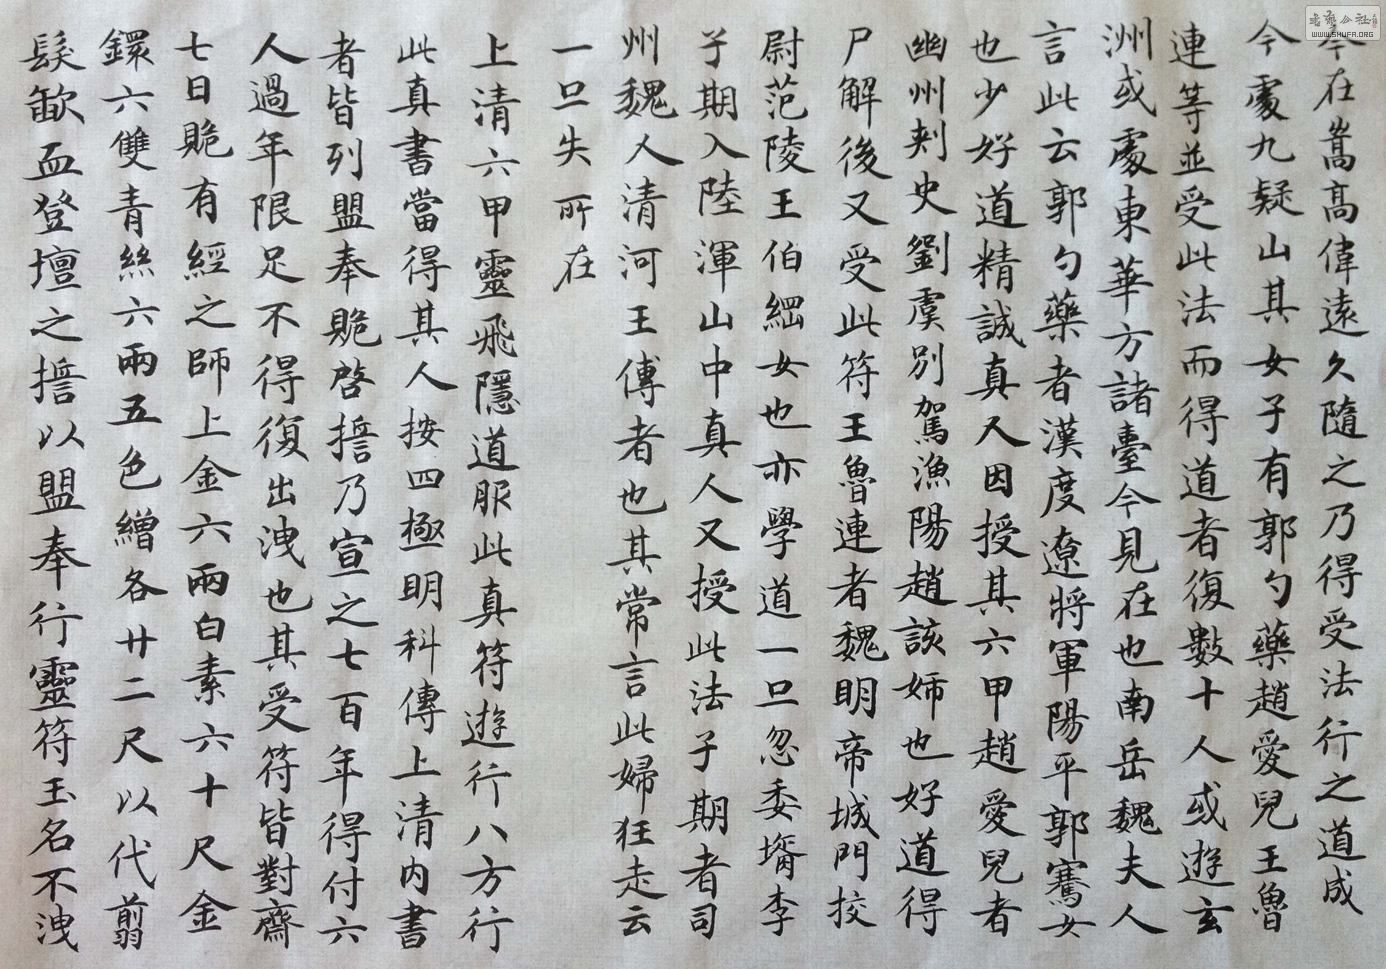 今在嵩高偉遠久隨之乃得受法行之道成
今處九疑山其女子有郭勺藥趙愛兒王魯
連等並受此法而得道者復數十人或遊玄
洲或處東華方諸臺今見在也南岳魏夫人
言此云郭勺藥者漢度遼將軍陽平郭騫女
也少好道精誠真人因授其六甲趙愛兒者
幽州刾史劉虞別駕漁陽趙該姉也好道得
尸解後又受此符王魯連者魏明帝城門挍
尉范陵王伯綱女也亦學道一旦忽委壻李
子期入陸渾山中真人又授此法子期者司
州魏人清河王傅者也其常言此婦狂走云
一旦失所在
上清六甲靈飛隱道服此真符遊行八方行
此真書當得其人按四極明科傳上清內書
者皆列盟奉贍啓擔乃宣之七百年得付六
人過年限足不得復出洩也其受符皆對齋
七日贍有經之師上金六兩白素六十尺金
鐶六雙青絲六兩五色繒各廿二尺以代翦
髮歃血登壇之擔以盟奉行靈符玉名不洩
書法公社
WWW.SHUFA.ORG